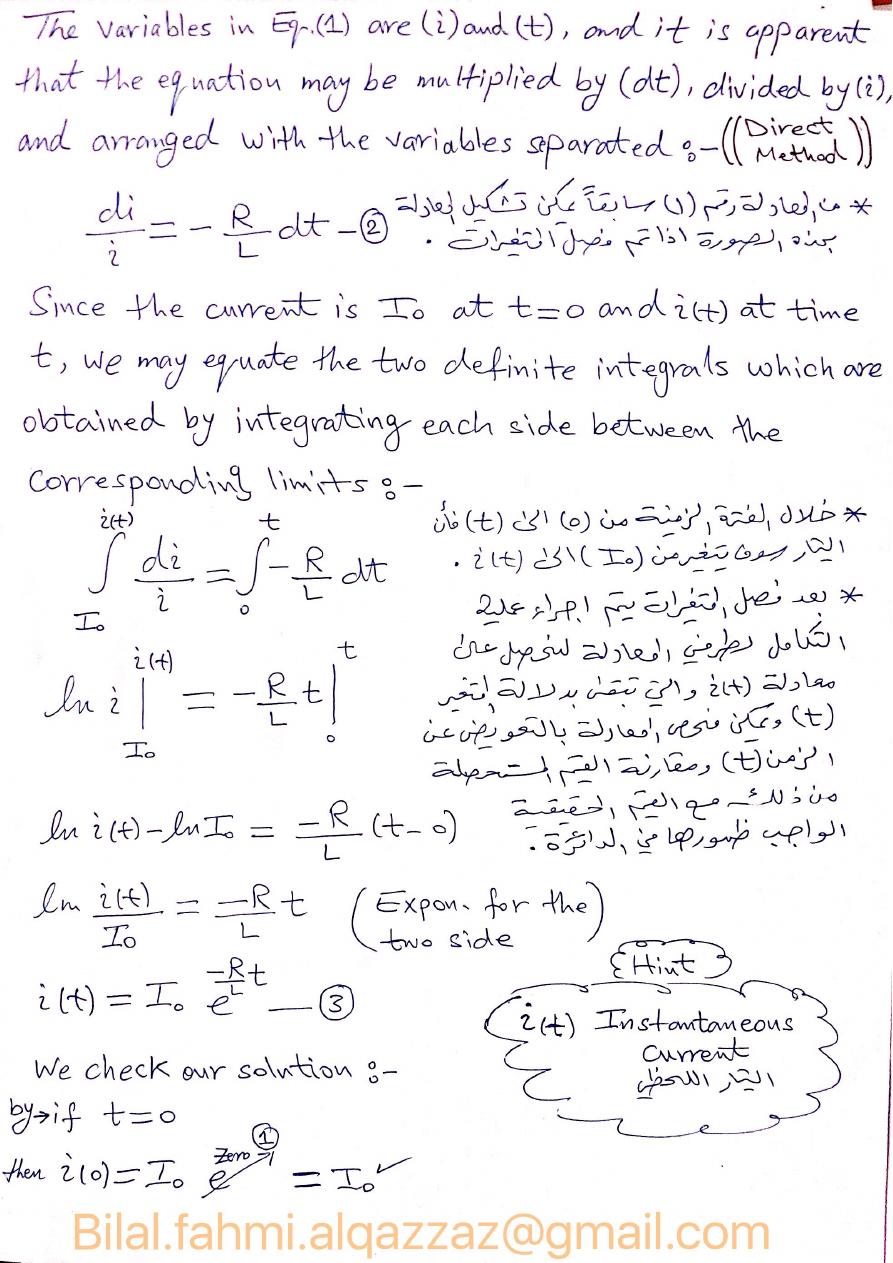 The variables in Eq.(1) are (i) and (t), and it is apparent
that the equation may be multiplied by (dt), divided by (i),
and arranged with the variables separated :- ((Direct Method))
di/i = - R/L dt - ②
* من المعادلة رقم (١) سابقاً يمكن تشكيل المعادلة
بهذه الصورة اذا تم فصل المتغيرات .
Since the current is I₀ at t=0 and i(t) at time
t, we may equate the two definite integrals which are
obtained by integrating each side between the
corresponding limits :-
∫_{I₀}^{i(t)} di/i = ∫_{0}^{t} - R/L dt
* خلال الفترة الزمنية من (0) الى (t) فأن
التيار سوف يتغير من (I₀) الى i(t) .
* بعد فصل المتغيرات يتم اجراء عملية
التكامل لطرفي المعادلة لنحصل على
معادلة i(t) والتي تبقى بدلالة المتغير
(t) ويمكن فحص المعادلة بالتعويض عن
الزمن (t) ومقارنة القيم المستحصلة
من ذلك مع القيم الحقيقية
الواجب ظهورها في الدائرة .
ln i |_{I₀}^{i(t)} = - R/L t |_{0}^{t}
ln i(t) - ln I₀ = -R/L (t - 0)
ln i(t)/I₀ = -R/L t (Expon. for the two side)
i(t) = I₀ e^{-R/L t} — ③
Hint
i(t) Instantaneous
Current
التيار اللحظي
We check our solution :-
by → if t=0
then i(0) = I₀ e^{zero} ① = I₀ ✓
Bilal.fahmi.alqazzaz@gmail.com